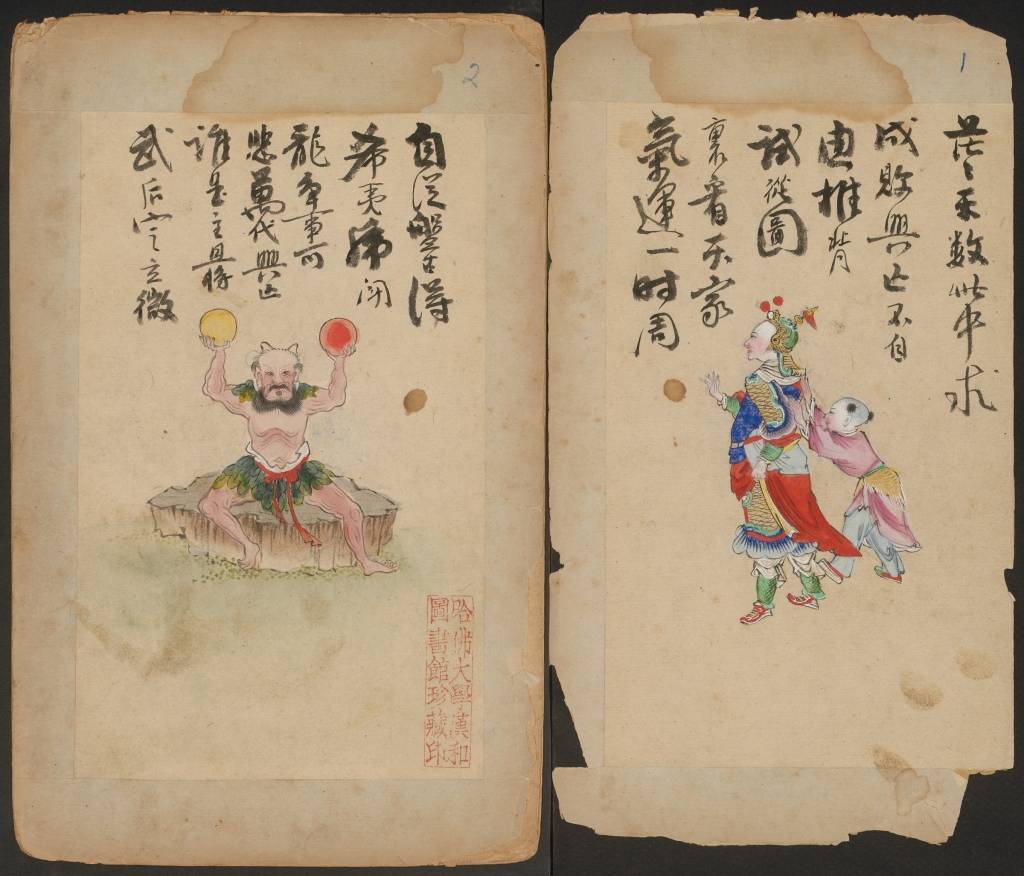 1
茫〻天数此中求
成敗興亡不自
由推背
試從圖
裏看天家
氣運一时周
2
自從盤古得
希夷虎闘
龍爭事可
悲萬代興亡
誰是主且將
武后定立微
哈佛大學漢和
圖書館珍藏印